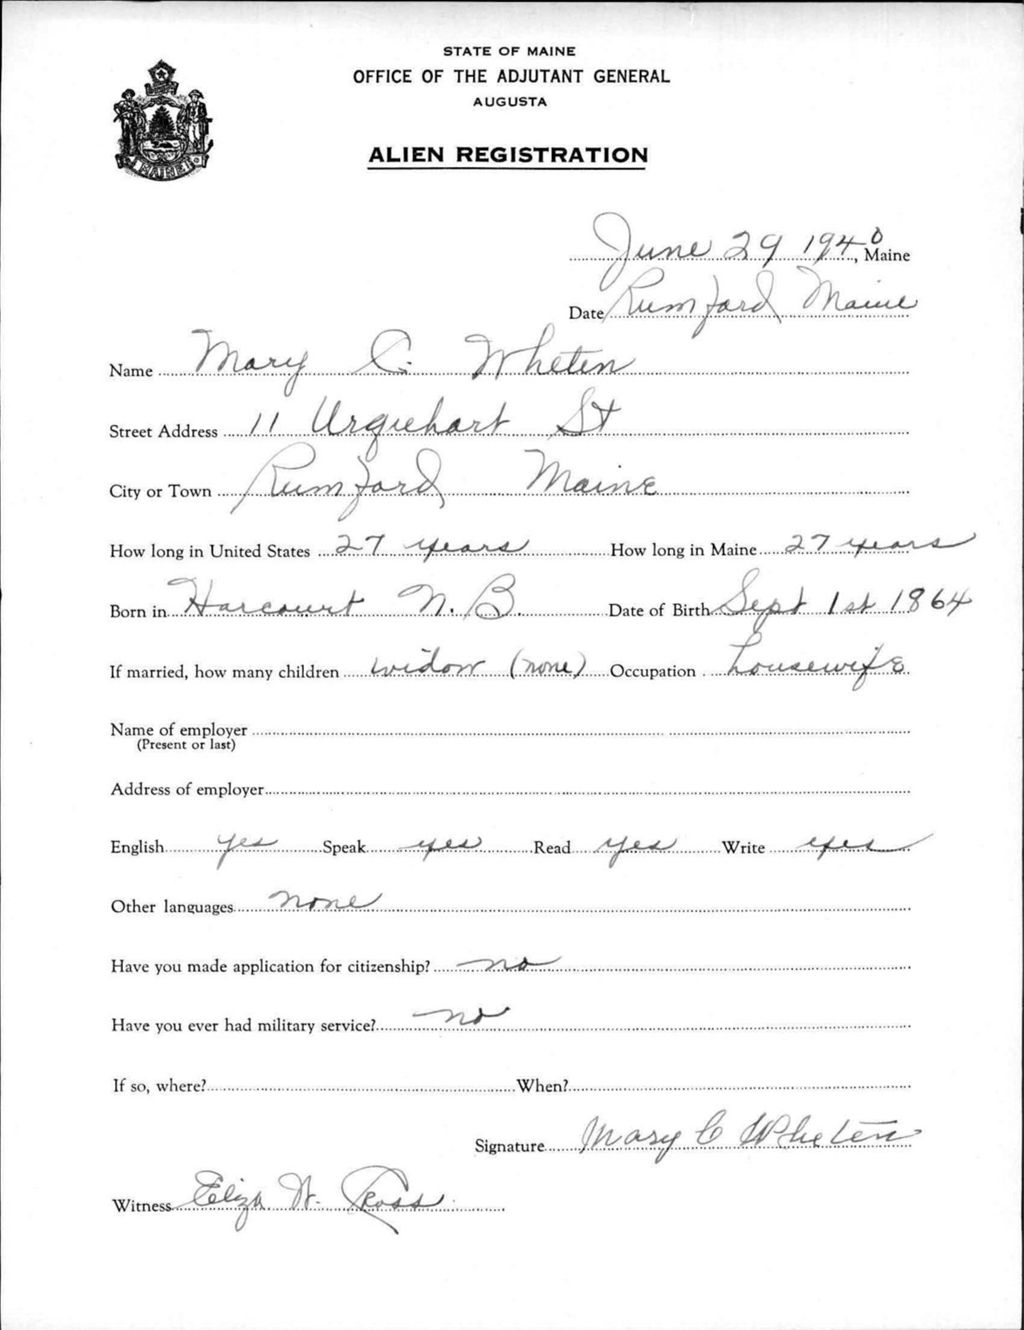 STATE OF MAINE
OFFICE OF THE ADJUTANT GENERAL
AUGUSTA
ALIEN REGISTRATION
MAINE
June 29 1940, Maine
Date Rumford Maine
Name Mary C. Wheten
Street Address 11 Urquehart St
City or Town Rumford Maine
How long in United States 27 years How long in Maine 27 years
Born in Harcourt N.B. Date of Birth Sept 1st 1864
If married, how many children widow (none) Occupation housewife
Name of employer
(Present or last)
Address of employer
English yes Speak yes Read yes Write yes
Other languages none
Have you made application for citizenship? no
Have you ever had military service? no
If so, where? When?
Signature Mary C Wheten
Witness Eliza W. Ross